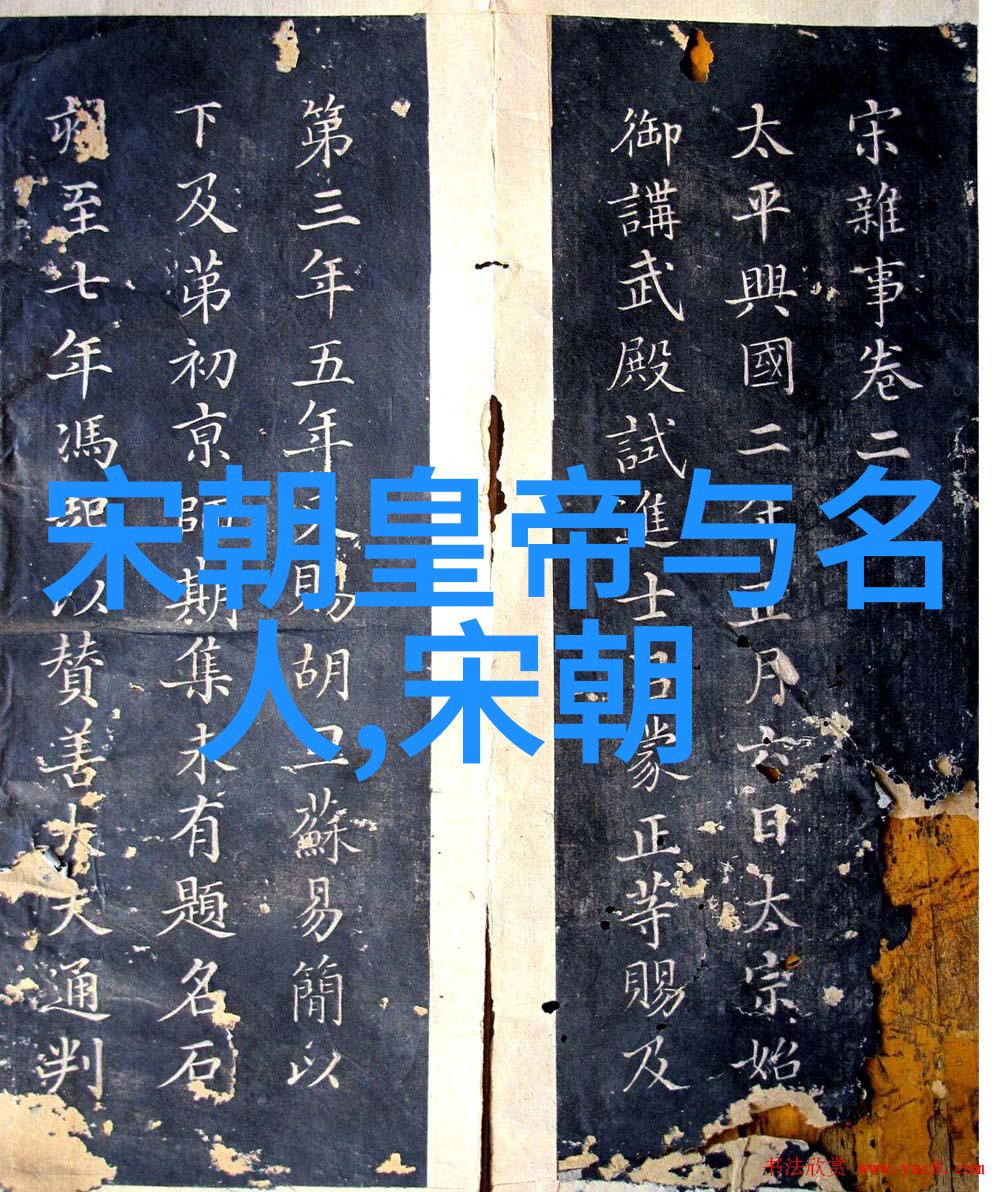 宋雜事卷二
太平興國二年正月六日太宗始
御講武殿試進士呂蒙正等賜及
第三年五年賜胡蘇易簡以
下及苐初亰師期集未有題名石
至七年馮起以賛善大夫通判
宋朝皇帝与名
人,宋朝
书法欣赏 www.yac8.com